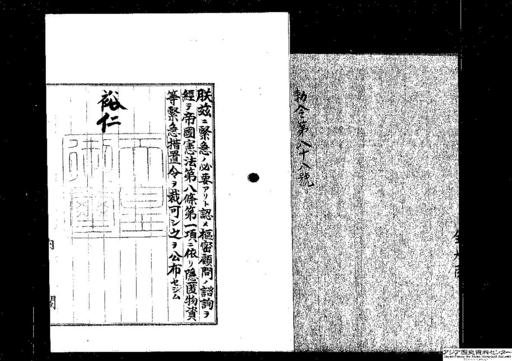 勅令第八十八號
朕玆ニ緊急ノ必要アリト認メ樞密顧問ノ諮詢ヲ
經テ帝國憲法第八條第一項ニ依リ隱匿物資
等緊急措置令ヲ裁可シ之ヲ公布セシム
裕仁
天皇
御璽
内閣
アジア歴史資料センター